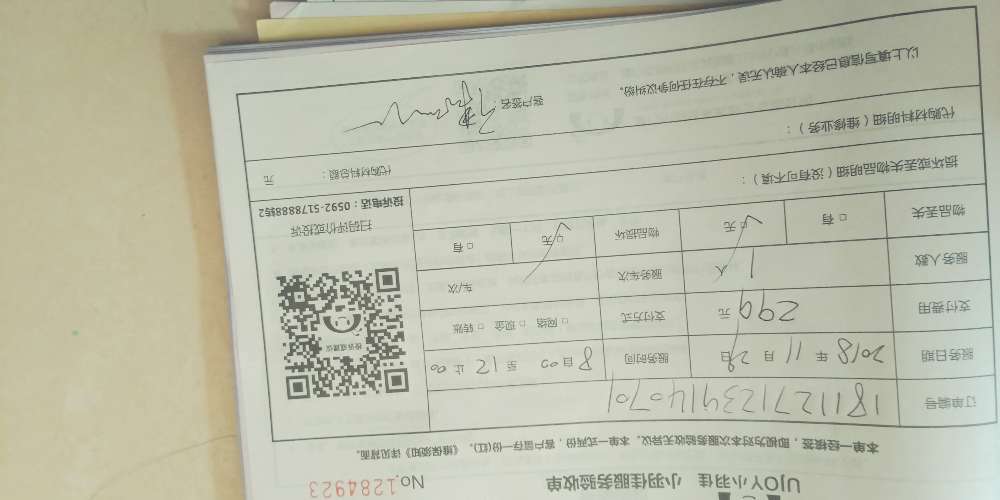 UJOY小羽佳 小羽佳服务验收单 No.1284923
本单一经接签，即视为对本次服务验收无异议。本单一式两份，客户留存一份(红)。《维保须知》详见背面。
订单编号 18112712394140701
服务日期 2018年11月28日 服务时间 8自00至12止00
支付费用 299元 支付方式 □网络 □现金 □转账
服务人数 1人 服务车次 车/次
物品丢失 □有 □无 物品损坏 □无 □有
投诉或建议
扫码评价或投诉
投诉电话：0592-5178888转2
损坏或丢失物品明细（没有可不填）：
代购材料明细（维修业务）：
代购材料总额： 元
以上填写信息已经本人确认无误，不存在任何争议纠纷。
客户签名：